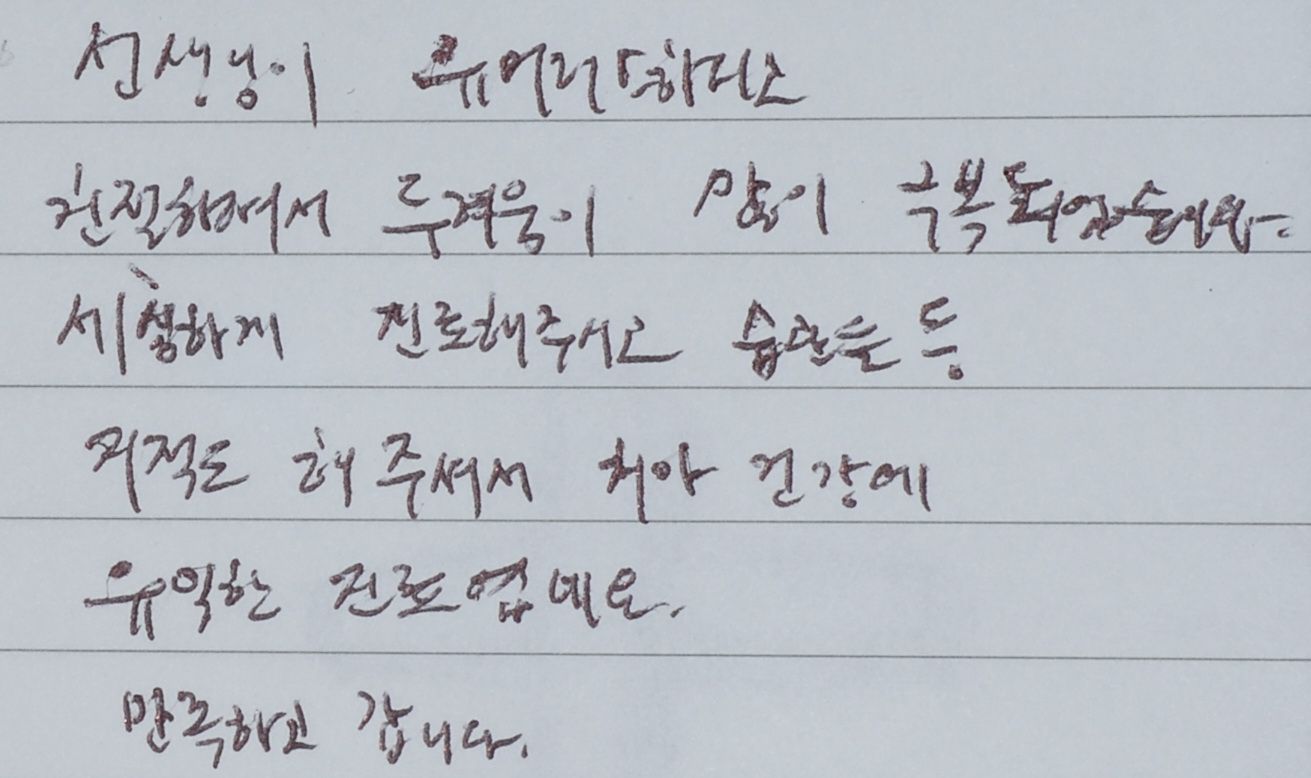 선생님이 유머러스하시고
친절하여서 두려움이 많이 극복되었습니다.
세심하게 진료해주시고 습관들 등
지적도 해 주셔서 치아 건강에
유익한 진료였네요.
만족하고 갑니다.